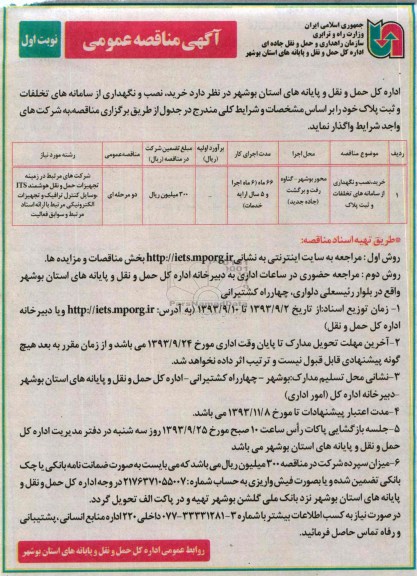 جمهوری اسلامی ایران
وزارت راه و ترابری
سازمان راهداری و حمل و نقل جاده ای
اداره کل حمل و نقل و پایانه های استان بوشهر
آگهی مناقصه عمومی
نوبت اول
اداره کل حمل و نقل و پایانه های استان بوشهر در نظر دارد خرید، نصب و نگهداری از سامانه های تخلفات
و ثبت پلاک خود را بر اساس مشخصات و شرایط کلی مندرج در جدول از طریق برگزاری مناقصه، به شرکت های
واجد شرایط واگذار نماید.
ردیف موضوع مناقصه محل اجرا مدت اجرای کار برآورد اولیه (ریال) مبلغ تضمین شرکت در مناقصه (ریال) مناقصه عمومی رشته مورد نیاز
۱ خرید، نصب و نگهداری از سامانه های تخلفات و ثبت پلاک محور بوشهر - گناوه رفت و برگشت (جاده جدید) ۶۶ ماه (۶ ماه اجرا و ۵ سال ارایه خدمات) ۳۰۰ میلیون ریال دو مرحله ای شرکت های مرتبط در زمینه تجهیزات حمل و نقل هوشمند ITS وسایل کنترل ترافیک و تجهیزات الکترونیکی مرتبط با ارائه اسناد مرتبط و سوابق فعالیت
*طریق تهیه اسناد مناقصه:
روش اول: مراجعه به سایت اینترنتی به نشانی http://iets.mporg.ir بخش مناقصات و مزایده ها.
روش دوم: مراجعه حضوری در ساعات اداری به دبیرخانه اداره کل حمل و نقل و پایانه های استان بوشهر
واقع در بلوار رئیسعلی دلواری، چهارراه کشتیرانی
۱- زمان توزیع اسناد: از تاریخ ۱۳۹۳/۹/۲ تا ۱۳۹۳/۹/۱۰ (به آدرس: http://iets.mporg.ir و یا دبیرخانه
اداره کل حمل و نقل)
۲- آخرین مهلت تحویل مدارک تا پایان وقت اداری مورخ ۱۳۹۳/۹/۲۴ می باشد و از زمان مقرر به بعد هیچ
گونه پیشنهادی قابل قبول نیست و ترتیب اثر داده نخواهد شد.
۳- نشانی محل تسلیم مدارک: بوشهر - چهارراه کشتیرانی - اداره کل حمل و نقل و پایانه های استان بوشهر
- دبیرخانه اداره کل (امور اداری)
۴- مدت اعتبار پیشنهادات تا مورخ ۱۳۹۳/۱۱/۸ می باشد.
۵- جلسه بازگشایی پاکات رأس ساعت ۱۰ صبح مورخ ۱۳۹۳/۹/۲۵ روز سه شنبه در دفتر مدیریت اداره کل
حمل و نقل و پایانه های استان بوشهر می باشد
۶- میزان سپرده شرکت در مناقصه ۳۰۰ میلیون ریال می باشد که می بایست به صورت ضمانت نامه بانکی یا چک
بانکی تضمین شده و یا بصورت فیش واریزی به حساب شماره: ۲۱۷۶۳۷۱۰۵۵۰۰۷ در وجه اداره کل حمل و نقل و
پایانه های استان بوشهر نزد بانک ملی گلشن بوشهر تهیه و در پاکت الف تحویل گردد.
در صورت نیاز به کسب اطلاعات بیشتر با شماره ۳-۳۳۳۳۱۲۸۱-۰۷۷ داخلی ۲۲۰ اداره منابع انسانی، پشتیبانی
و رفاه تماس حاصل فرمائید.
روابط عمومی اداره کل حمل و نقل و پایانه های استان بوشهر